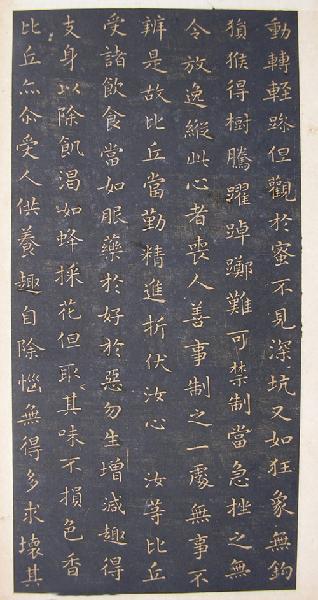 動轉輕躁但觀於蜜不見深坑又如狂象無鈎
猨猴得樹騰躍踔躑難可禁制當急挫之無
令放逸縱此心者喪人善事制之一處無事不
辨是故比丘當勤精進折伏汝心 汝等比丘
受諸飲食當如眼藥於好於惡勿生增減趣得
支身以除飢渴如蜂採花但取其味不損色香
比丘亦尒受人供養趣自除惱無得多求壞其